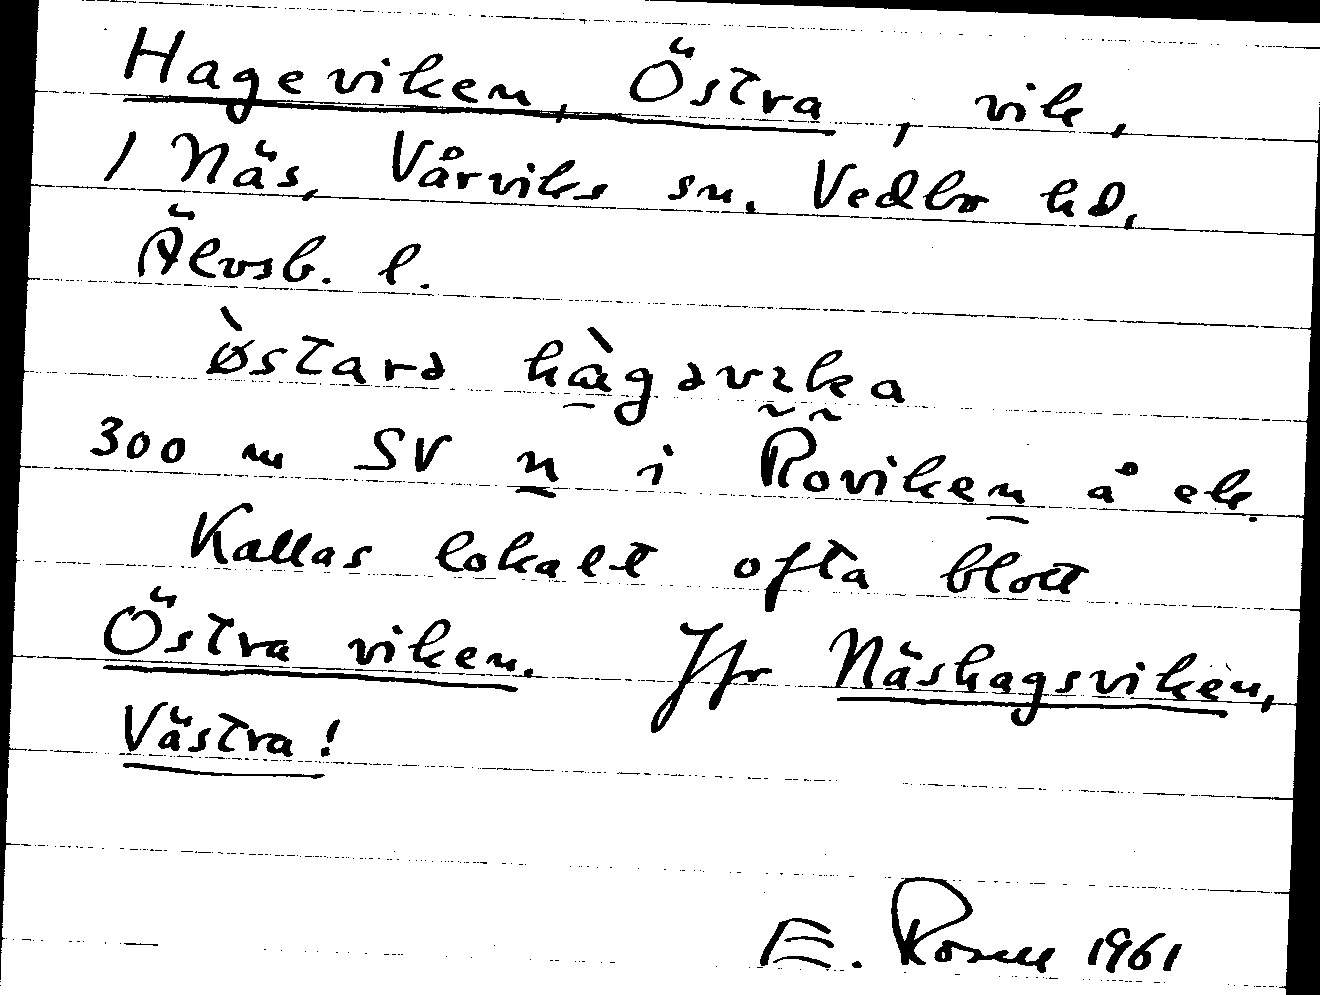 Hageviken, Östra, vik,
/ Näs, Vårviks sn. Vedbo hd,
Älvsb. l.
ø̀starə hàgəvɩka
300 m SV n i Roviken å ek.
Kallas lokalt ofta blott
Östra viken. Jfr Näshagsviken,
Västra!
E. Rosell 1961